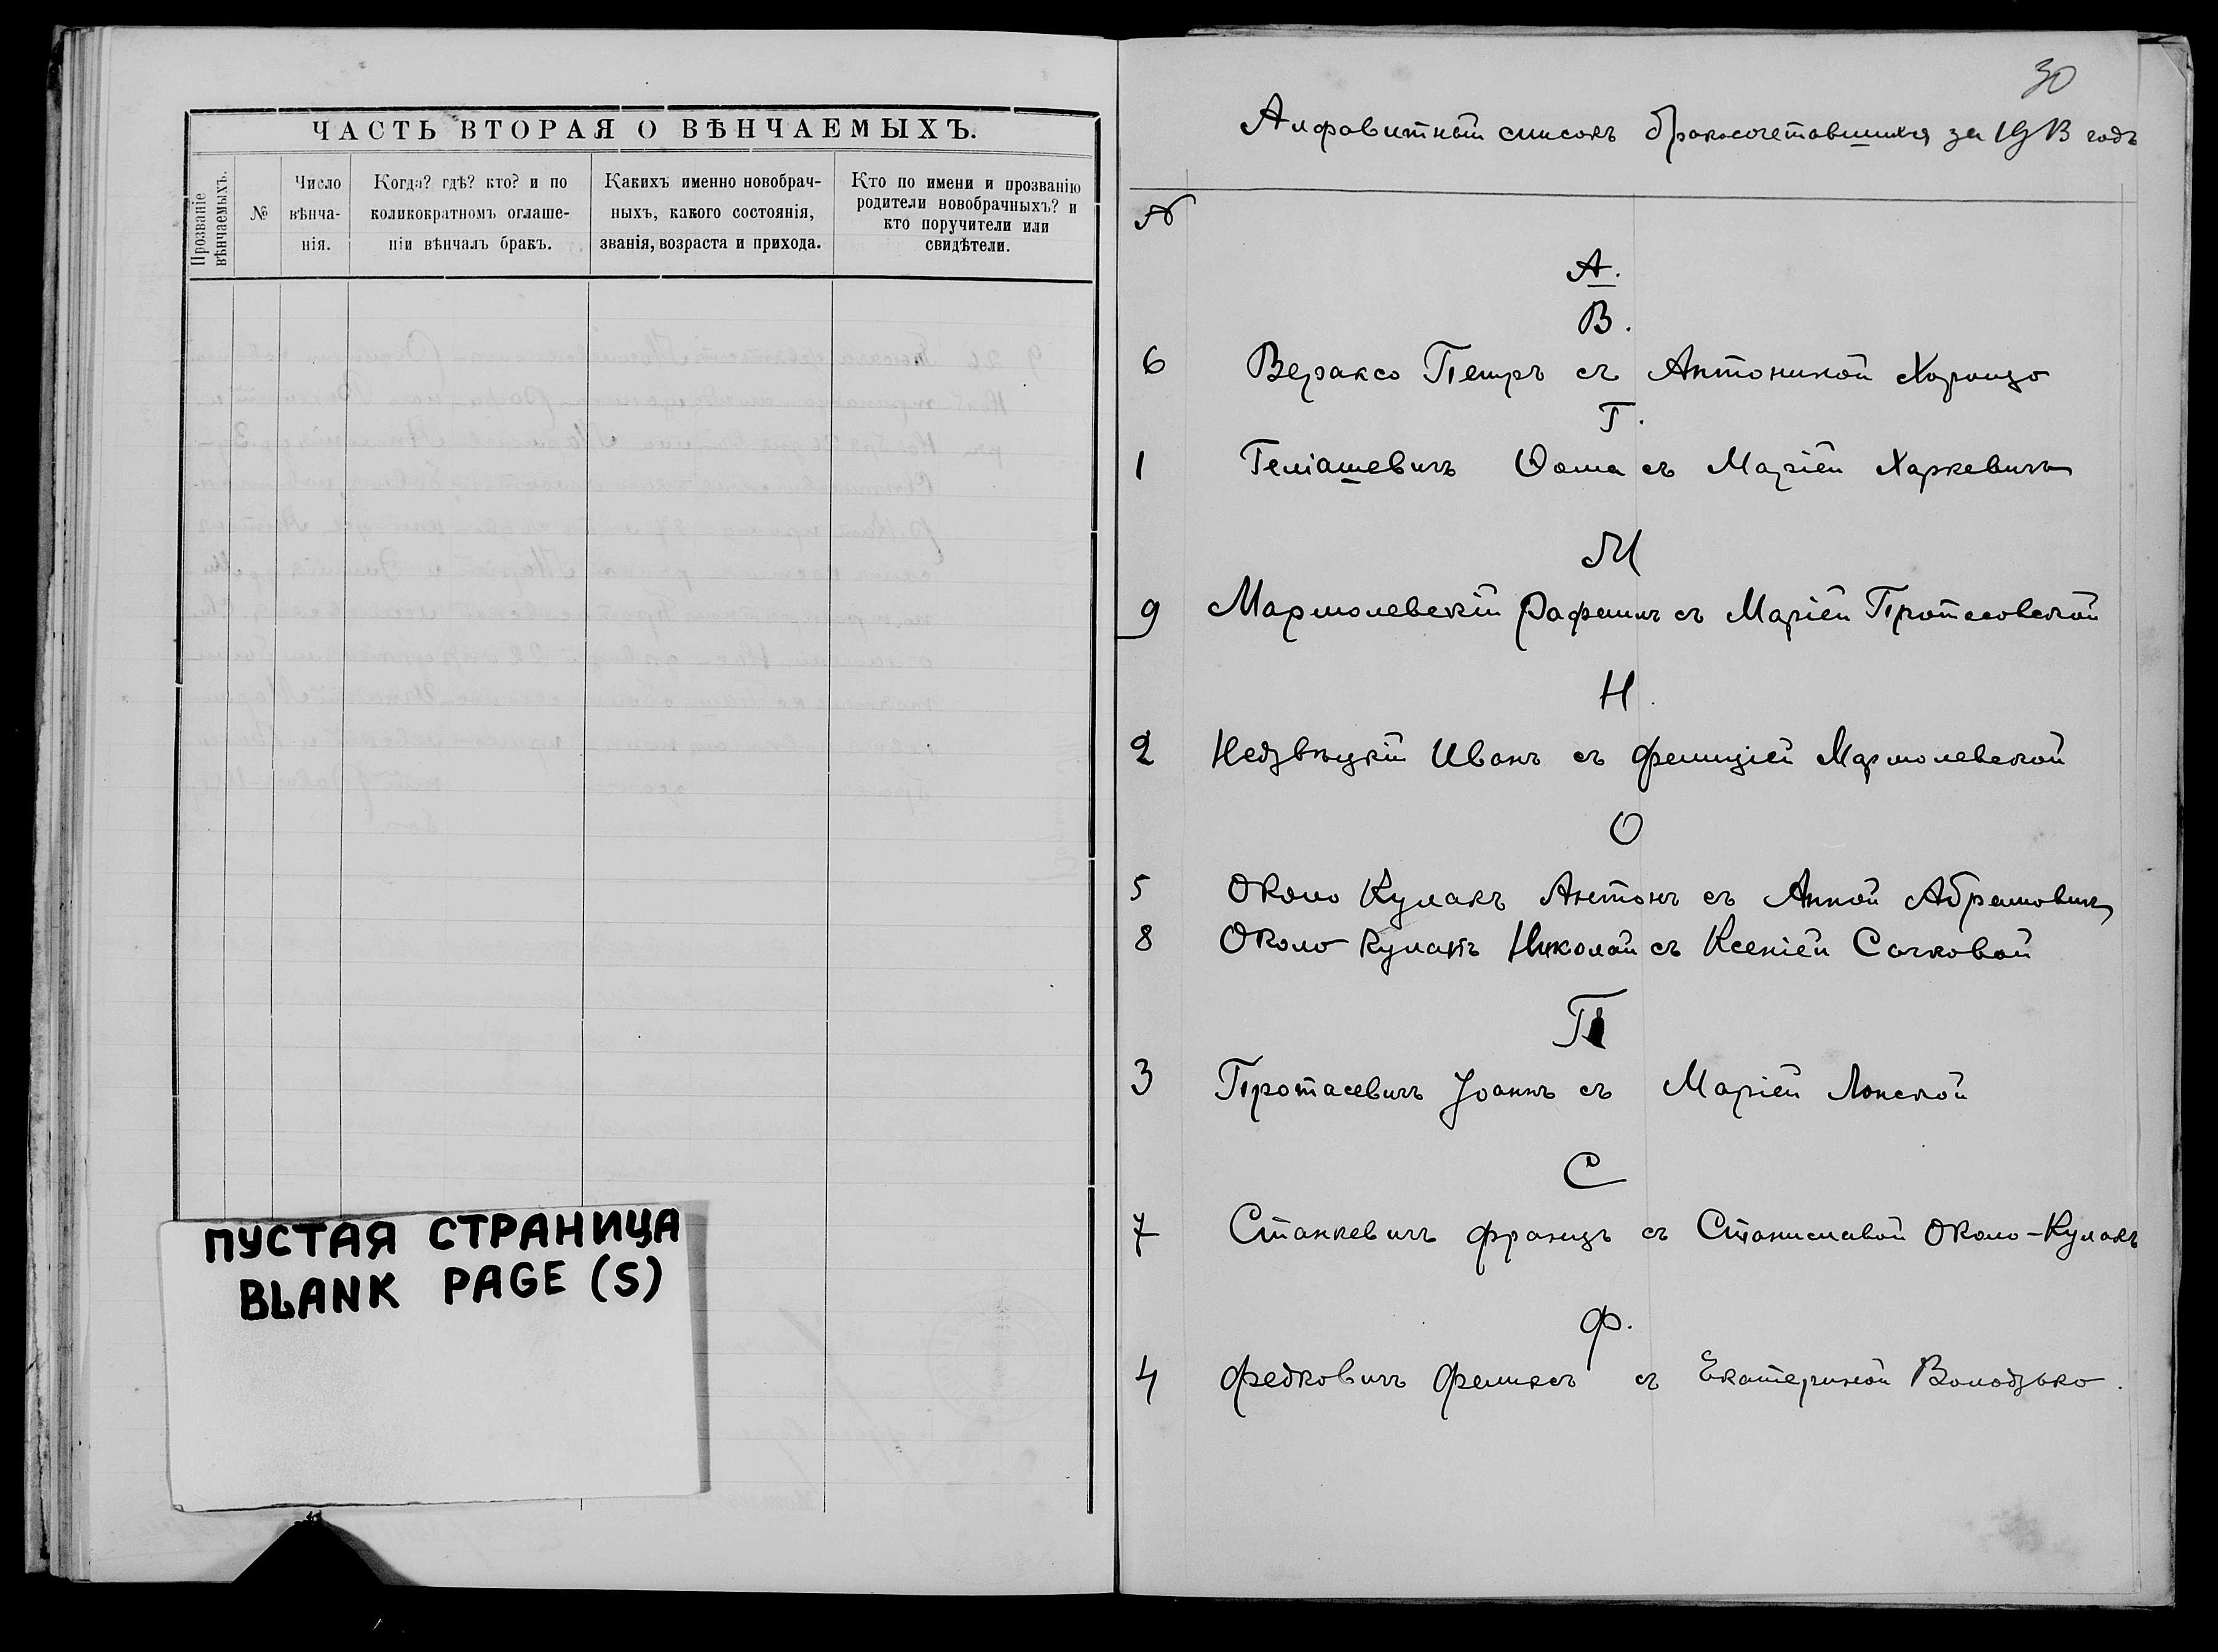 ЧАСТЬ ВТОРАЯ О ВѢНЧАЕМЫХЪ.
Прозваніе вѣнчаемыхъ.
№
Число вѣнча-нія.
Когда? гдѣ? кто? и по
коликократномъ оглаше-
ніи вѣнчалъ бракъ.
Какихъ именно новобрач-
ныхъ, какого состоянія,
званія, возраста и прихода.
Кто по имени и прозванію
родители новобрачныхъ? и
кто поручители или
свидѣтели.
ПУСТАЯ СТРАНИЦА
BLANK PAGE (S)
30
Алфавитный списокъ бракосочетавшихся за 1913 годъ
№
А.
В.
6 Вераксо Петръ съ Антониной Харонцо
Г.
1 Геліашевичъ Ѳома съ Маріей Харкевичъ
М
9 Мармолевскій Рафаилъ съ Маріей Протасовской
Н.
2 Недзвѣцкій Иванъ съ Фелиціей Мармолевской
О
5 Около Кулакъ Антонъ съ Анной Абрамовичъ
8 Около Кулакъ Николай съ Ксеніей Сочковой
П
3 Протасевичъ Іоаннъ съ Маріей Лонской
С
7 Станкевичъ Францъ съ Станиславой Около-Кулакъ
Ф.
4 Федковичъ Феликсъ съ Екатериной Володзько.